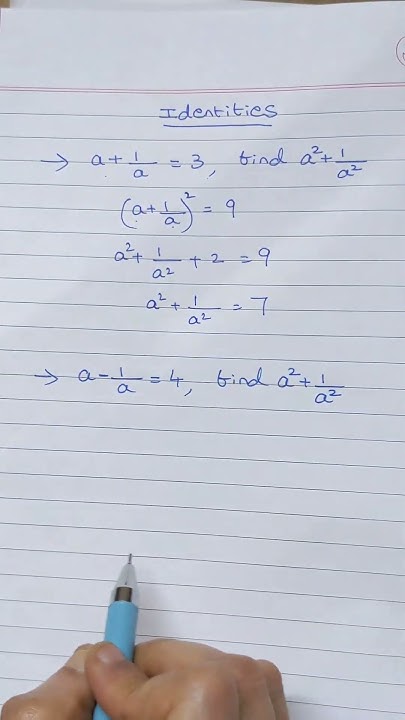 Identities
→ a + 1/a = 3, find a² + 1/a²
(a + 1/a)² = 9
a² + 1/a² + 2 = 9
a² + 1/a² = 7
→ a - 1/a = 4, find a² + 1/a²